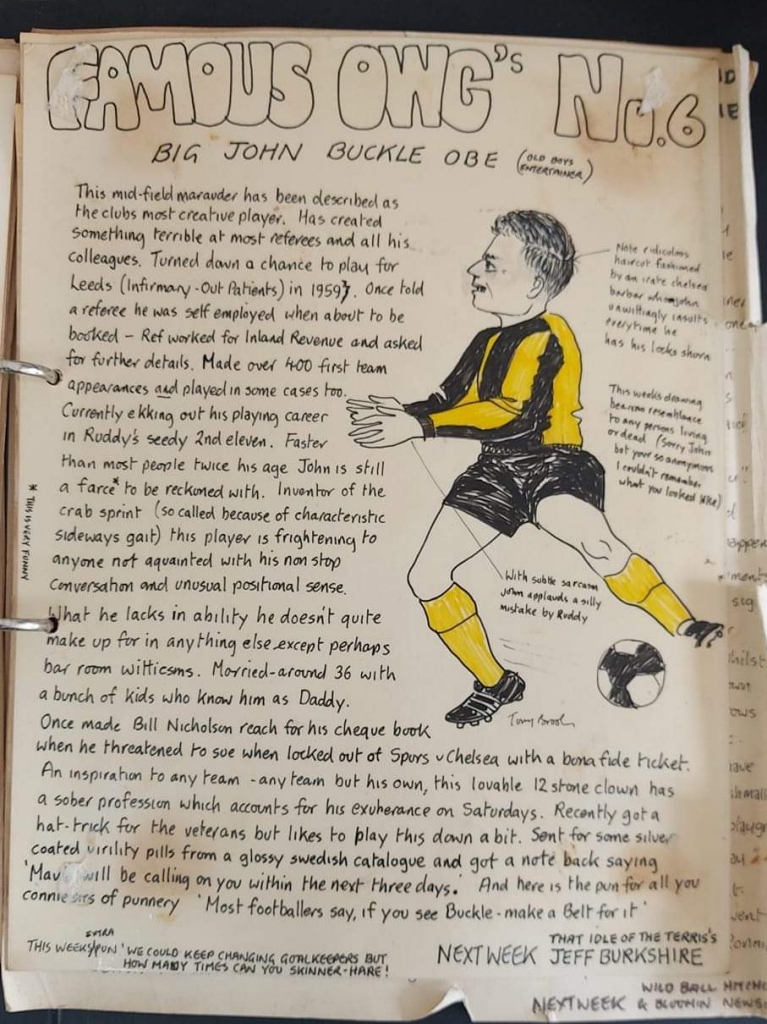 FAMOUS OWG's No.6
BIG JOHN BUCKLE OBE (OLD BOYS ENTERTAINER)
This mid-field marauder has been described as
the clubs most creative player. Has created
something terrible at most referees and all his
colleagues. Turned down a chance to play for
Leeds (Infirmary-Out Patients) in 1959. Once told
a referee he was self employed when about to be
booked - Ref worked for Inland Revenue and asked
for further details. Made over 400 first team
appearances and played in some cases too.
Currently ekking out his playing career
in Ruddy's seedy 2nd eleven. Faster
than most people twice his age John is still
a farce* to be reckoned with. Inventor of the
crab sprint (so called because of characteristic
sideways gait) this player is frightening to
anyone not aquainted with his non stop
conversation and unusual positional sense.
What he lacks in ability he doesn't quite
make up for in anything else except perhaps
bar room witticsms. Morried-around 36 with
a bunch of kids who know him as Daddy.
Once made Bill Nicholson reach for his cheque book
when he threatened to sue when locked out of Spurs v Chelsea with a bona fide ticket.
An inspiration to any team - any team but his own, this lovable 12 stone clown has
a sober profession which accounts for his exuherance on Saturdays. Recently got a
hat-trick for the veterans but likes to play this down a bit. Sent for some silver
coated virility pills from a glossy swedish catalogue and got a note back saying
will be calling on you within the next three days.' And here is the pun for all you
of punnery 'Most footballers say, if you see Buckle - make a Belt for it'
* THIS IS VERY FUNNY
Note ridiculous
haircut fashioned
by an irate chelsea
barber whom john
unwittingly insults
everytime he
has his locks shorn
This weeks drawing
bears no resemblance
to any persons living
or dead (Sorry John
but your so anonymous
I couldn't remember
what you looked like)
With subtle sarcasm
john applauds a silly
mistake by Ruddy
Tony Brook
EXTRA
THIS WEEKS PUN 'WE COULD KEEP CHANGING GOALKEEPERS BUT
HOW MANY TIMES CAN YOU SKINNER-HARE!
THAT IDLE OF THE TERRIS'S
NEXT WEEK JEFF BURKSHIRE
WILD BALL
NEXTWEEK & BLOOMIN NEWS